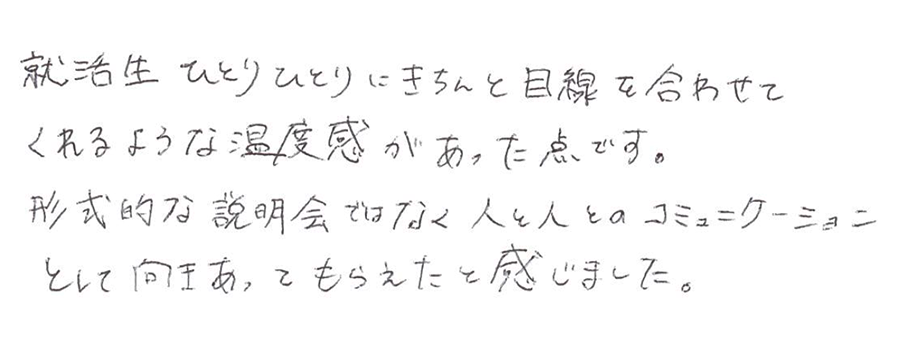 就活生ひとりひとりにきちんと目線を合わせて
くれるような温度感があった点です。
形式的な説明会ではなく人と人とのコミュニケーション
として向きあってもらえたと感じました。